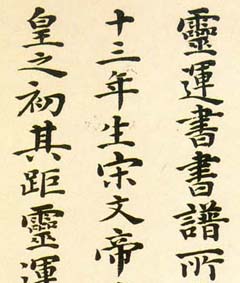 靈運書書譜所
十三年生宋文帝
皇之初其距靈運